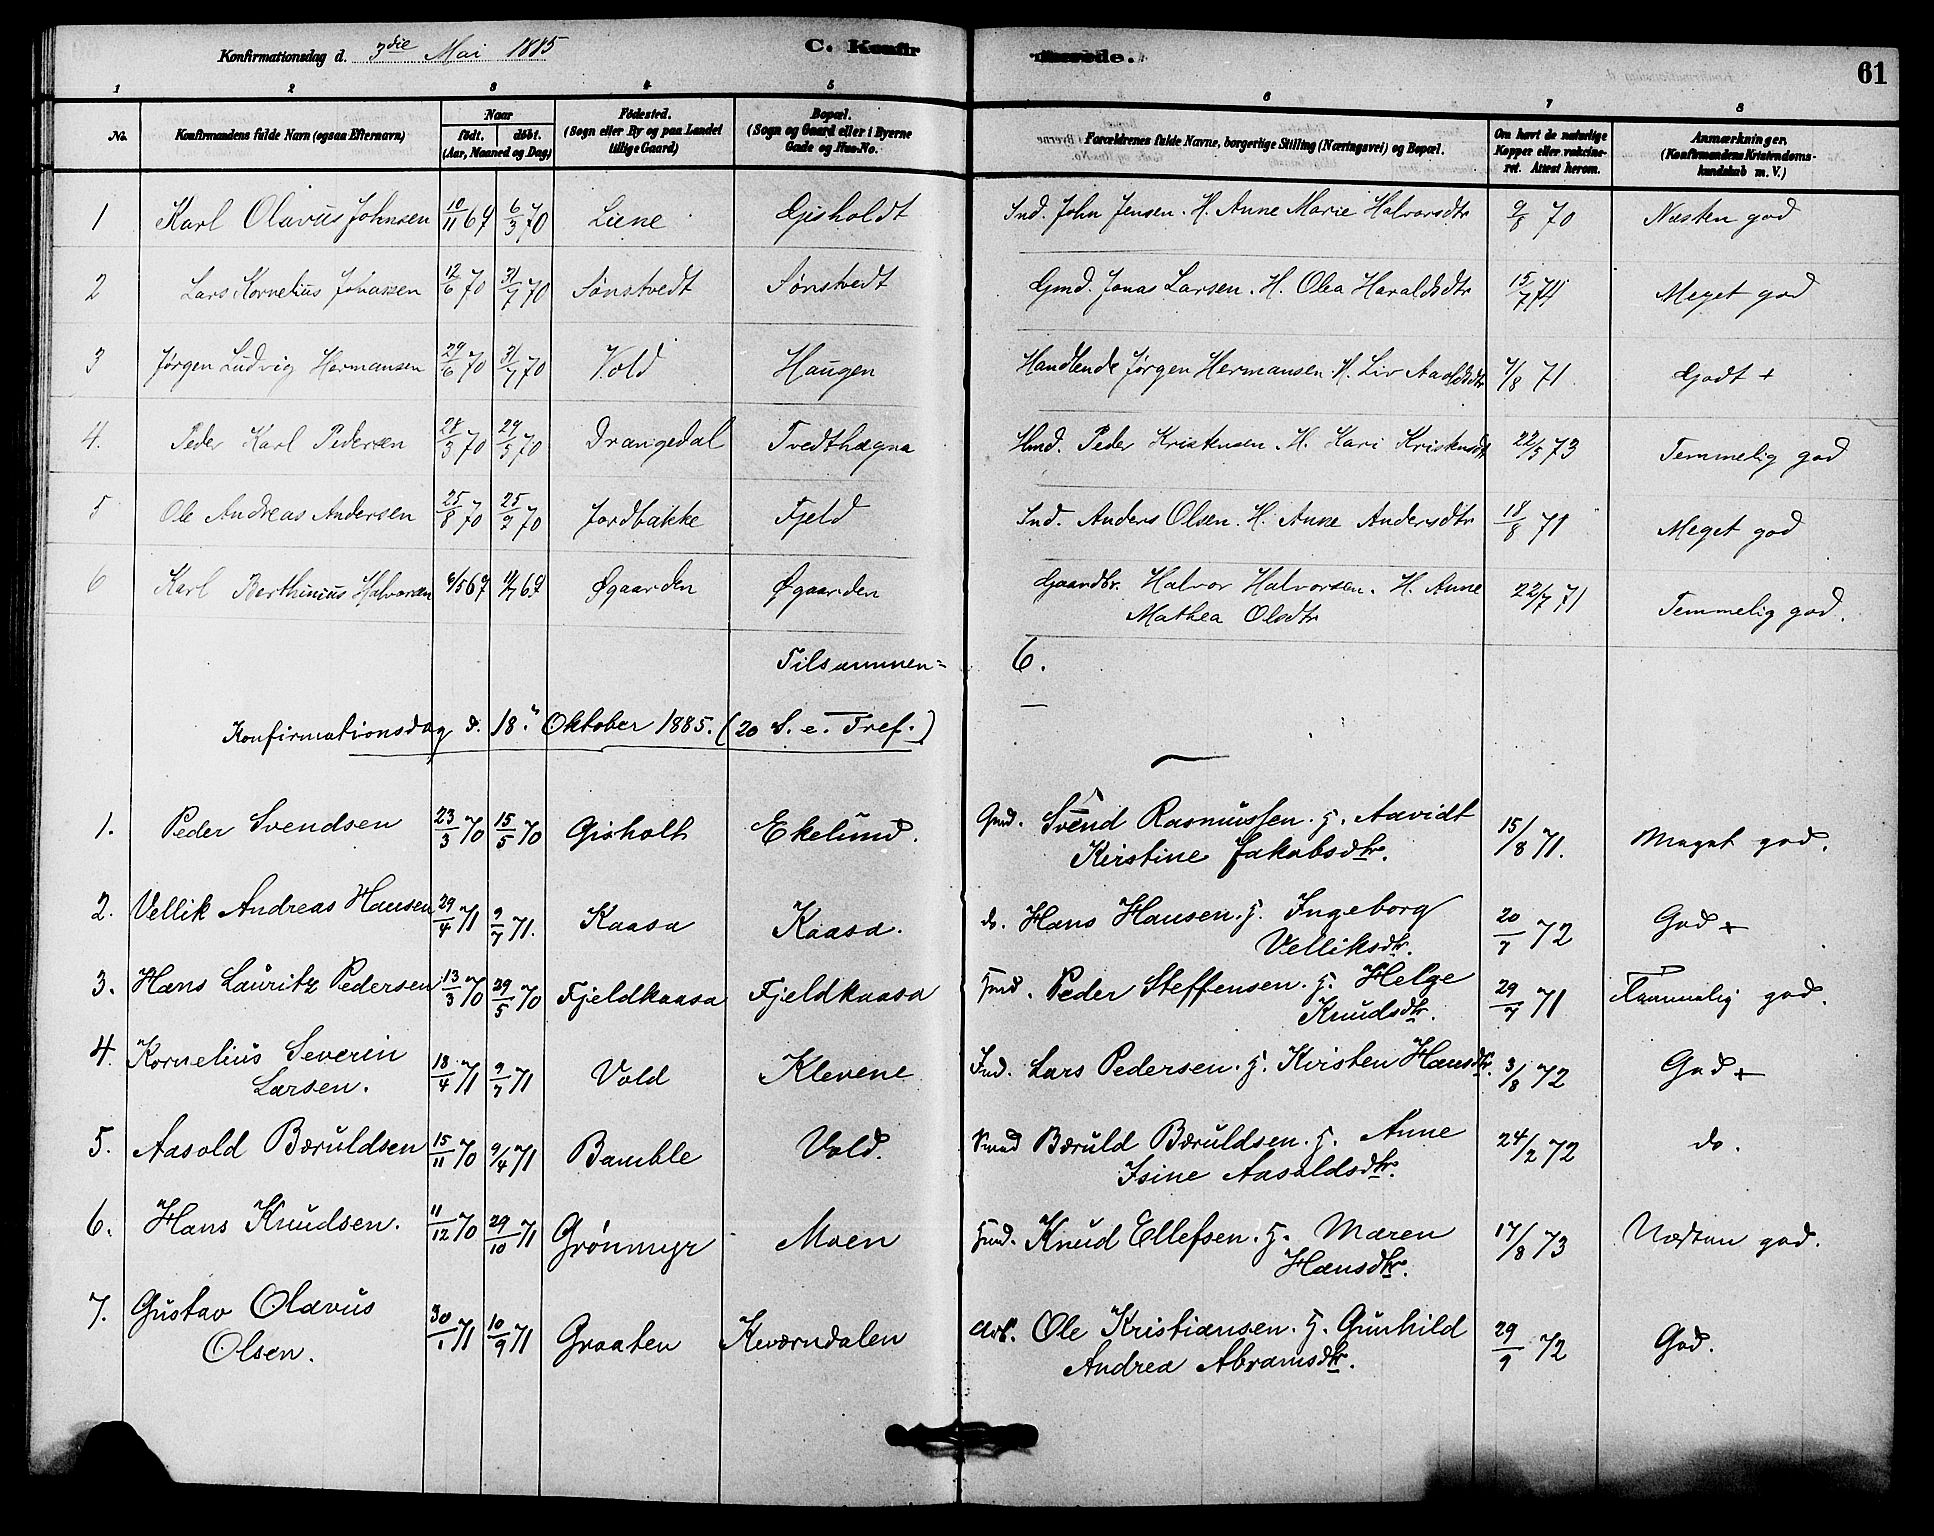 Konfirmationsdag d. 3die Mai 1885 C. Konfirmerede. 61
1 2 3 4 5 6 7 8
No. Konfirmandens fulde Navn (ogsaa Efternavn) Naar født. døbt. (Aar, Maaned og Dag) Fødested. (Sogn eller By og paa Landet tillige Gaard) Bopæl. (Sogn og Gaard eller i Byerne Gade og Hus-No. Forældrenes fulde Navne, borgerlige Stilling (Næringsvei) og Bopæl. Om havt de naturlige Kopper eller vaksineret. Attest herom. Anmærkninger. (Konfirmandens Kristendomskundskab m. V.)
1 Karl Olavus Johnsen 10/11 69 6/3 70 Liene Gisholdt Ind. John Jensen. H. Anne Marie Halvorsdtr 9/8 70 Næsten god
2 Lars Kornelius Johansen 12/6 70 31/7 70 Sønstvedt Sønstvedt Gmd. Jonas Larsen. H. Olea Haraldsdtr 15/7 74 Meget god
3 Jørgen Ludvig Hermansen 29/6 70 31/7 70 Vold Haugen Handlende Jørgen Hermansen. H. Liv Aasoldsdtr 4/8 71 Godt +
4. Peder Karl Pedersen 28/3 70 29/5 70 Drangedal Tvedthægna Hmd. Peder Kristensen. H. Kari Kristensdtr 22/5 73 Temmelig god
5 Ole Andreas Andersen 25/8 70 25/9 70 Jordbakke Fjeld Ind. Anders Olsen. H. Anne Andersdtr 18/8 71 Meget god
6 Karl Berthinius Halvorsen 6/5 69 11/7 69 Øgaarden Øgaarden Gaardbr. Halvor Halvorsen. H. Anne
Mathea Olsdtr 22/7 71 Temmelig god.
Tilsammen = 6.
Konfirmationsdag d. 18. Oktober 1885. (20 S. e. Tref.)
1. Peder Svendsen 23/3 70 15/5 70 Gisholt Ekelund. Gmd. Svend Rasmussen. H. Aavidt
Kirstine Jakobsdtr. 15/8 71. Meget god.
2. Vellik Andreas Hansen 29/4 71 9/7 71. Kaasa Kaasa. do. Hans Hansen. H. Ingeborg
Velliksdtr. 20/7 72 God +
3. Hans Lauritz Pedersen 13/3 70 29/5 70 Fjeldkaasa Fjeldkaasa Hmd. Peder Steffensen. H. Helge
Knudsdtr. 29/7 71 Temmelig god.
4. Kornelius Severin
Larsen. 18/4 71 9/7 71 Vold Klevene Ind. Lars Pedersen. H. Kirsten Hansdtr. 3/8 72 God +
5. Aasold Bæruldsen 15/11 70 9/4 71 Bamble Vold. Smed Bæruld Bæruldsen. H. Anne
Isine Aasoldsdtr. 24/2 72 do.
6. Hans Knudsen. 11/12 70 29/10 71 Grönmyr Moen Hmd. Knud Ellefsen. H. Maren
Hansdtr. 17/8 73 Næsten god.
7. Gustav Olavus
Olsen. 30/1 71 10/9 71 Graaten Kværndalen Arb. Ole Kristiansen. H. Gunhild
Andrea Abramsdtr. 29/9 72 God.